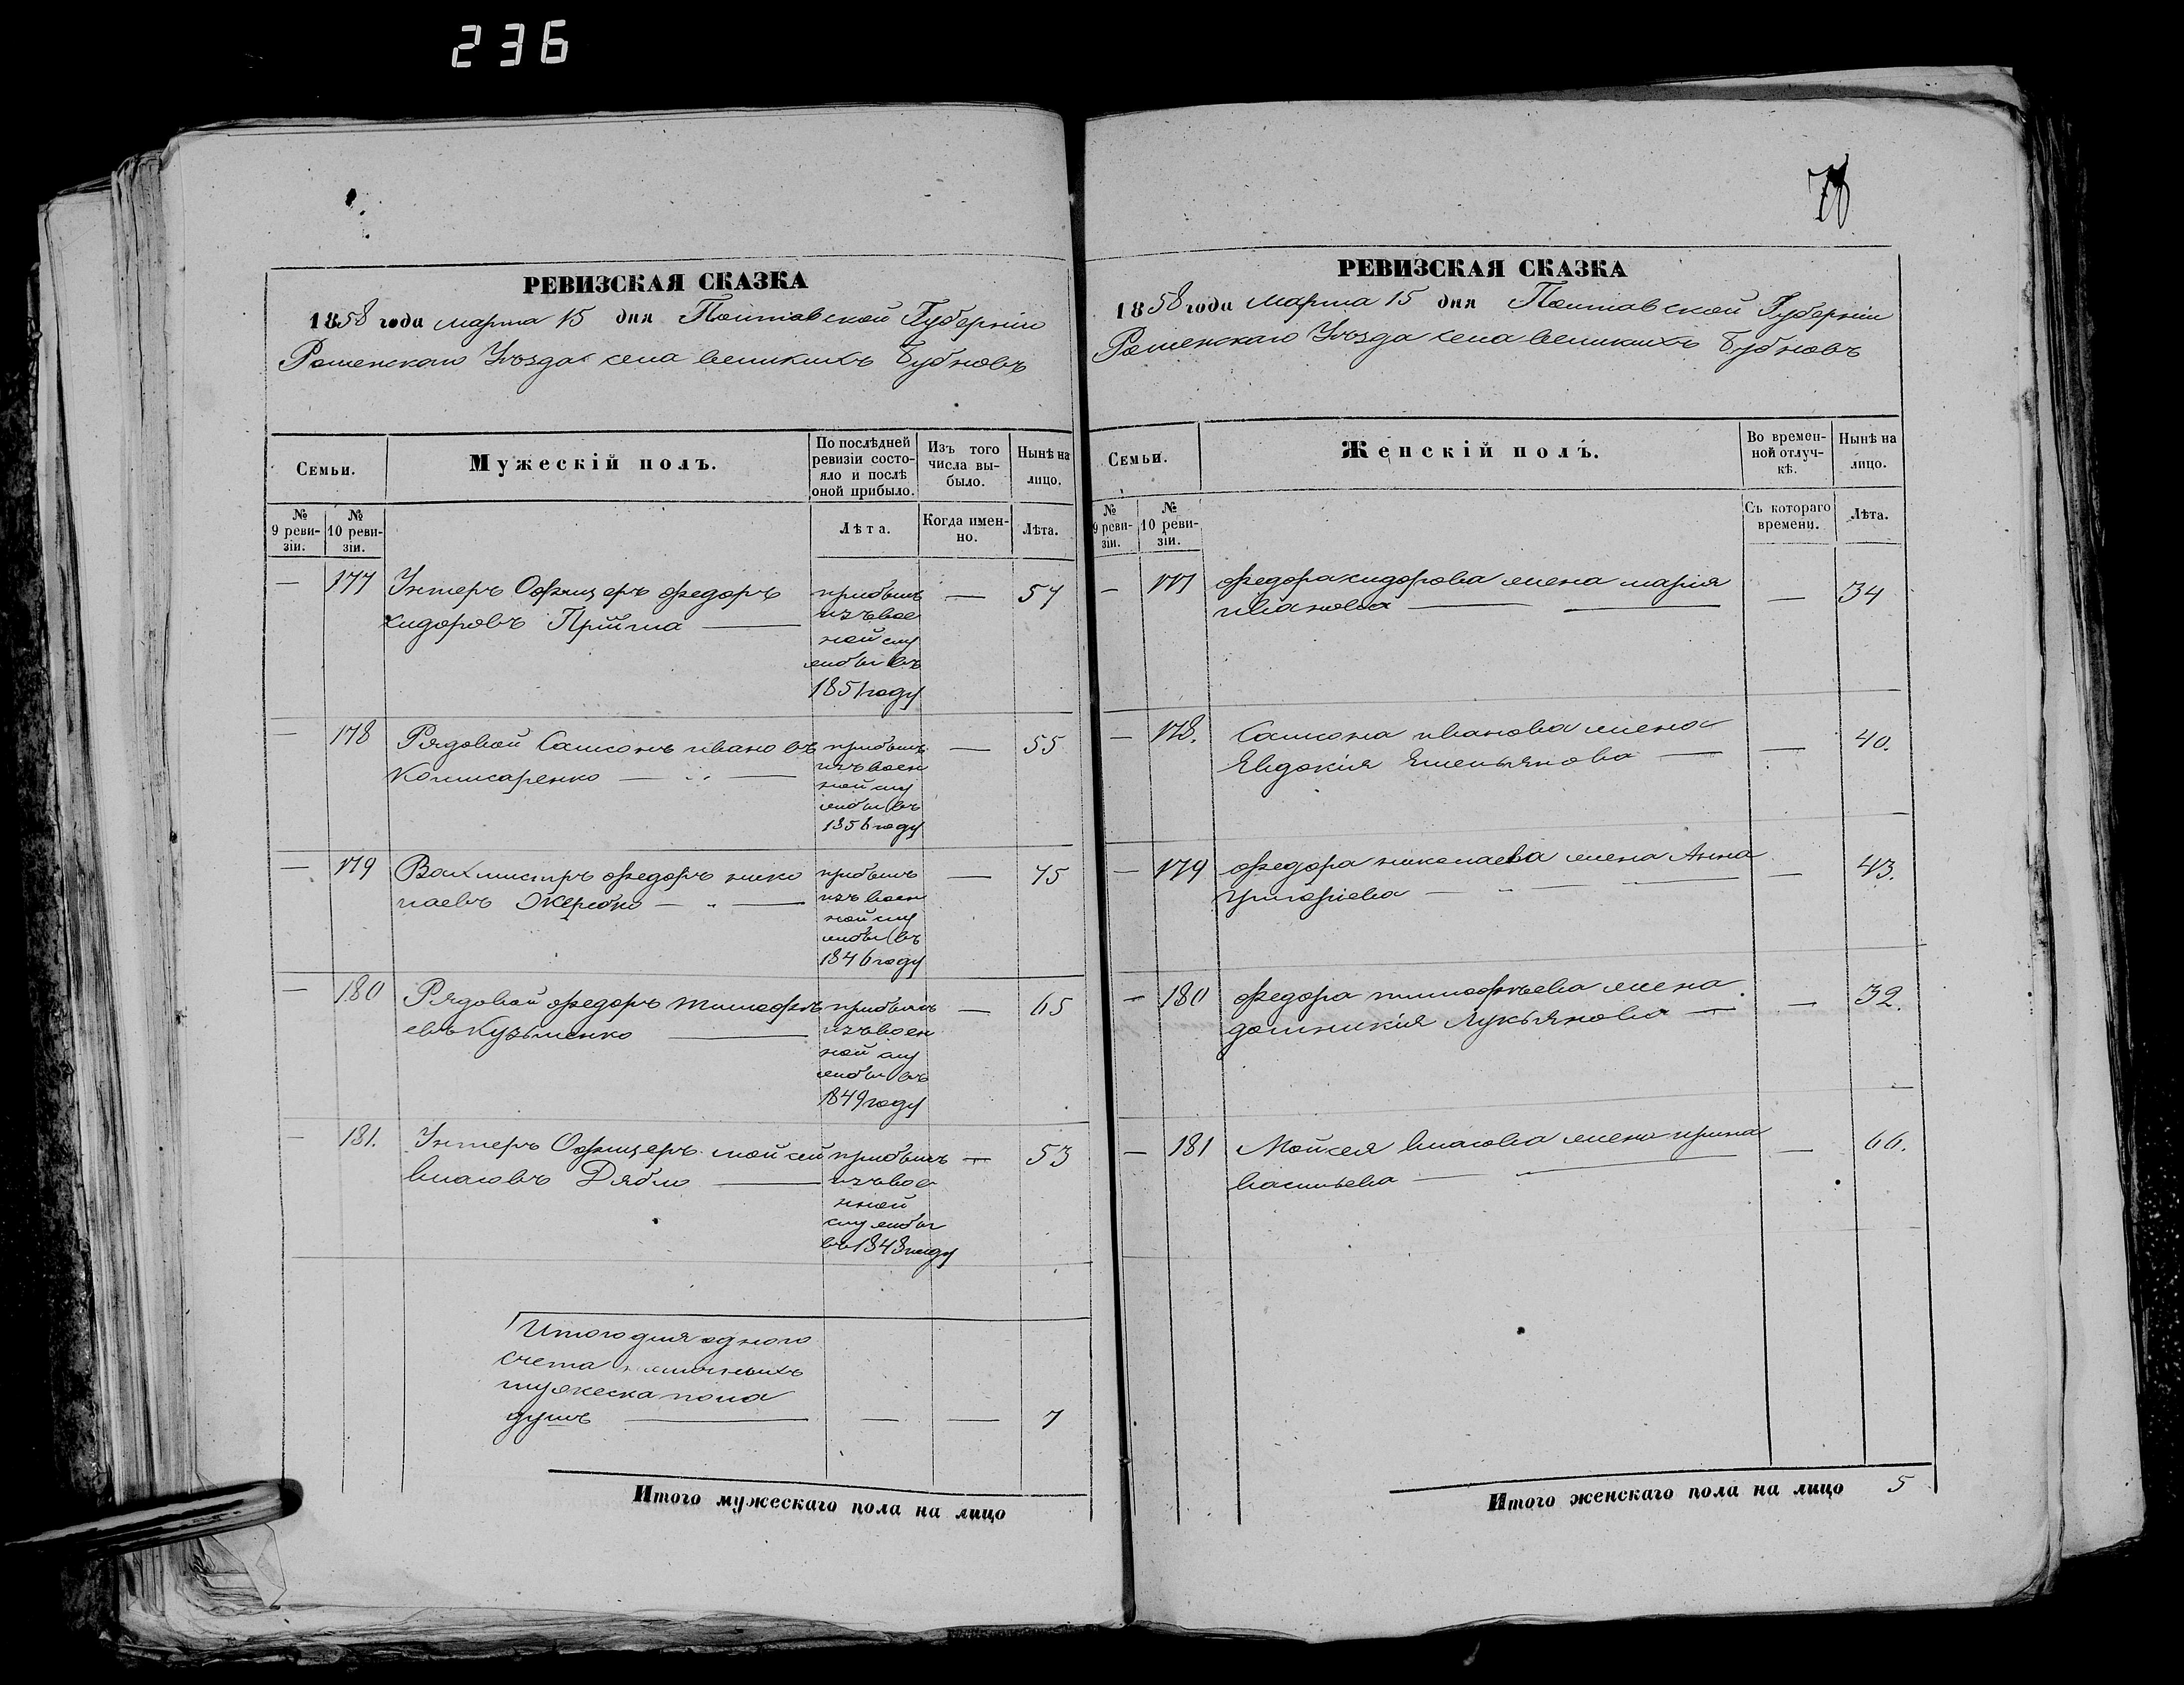 236
78
РЕВИЗСКАЯ СКАЗКА
1858 года марта 15 дня Полтавской Губерніи
Роменскаго Уѣзда села великихъ Бубновъ
Семьи.
Мужескій полъ.
По послѣдней ревизіи состояло и послѣ оной прибыло.
Изъ того числа выбыло.
Нынѣ на лицо.
№ 9 ревизіи.
№ 10 ревизіи.
Лѣта.
Когда именно.
Лѣта.
— 177 Унтеръ Офицеръ федоръ прибылъ — 57
сидоровъ Прійма — изъ вое
ной слу
жбы въ
1851 году
— 178 Рядовой Самсонъ ивановъ прибылъ — 55
Комисаренко — изъ воен
ной слу
жбы въ
1856 году
— 179 Вахмистръ федоръ нико прибылъ — 75
лаевъ — изъ воен
ной слу
жбы въ
1846 году
— 180 Рядовой федоръ тимофѣ прибылъ — 65
евъ Кузьменко — изъ воен
ной слу
жбы въ
1849 году
— 181. Унтеръ Офицеръ мойсей прибылъ — 53
власовъ Дябло — изъ вое
нной
службы
въ 1848 году
Итого для одного
счета наличныхъ
мужеска пола
душъ — — — 7
Итого мужескаго пола на лицо
РЕВИЗСКАЯ СКАЗКА
1858 года марта 15 дня Полтавской Губерніи
Роменскаго Уѣзда села великихъ Бубновъ
Семьи.
Женскій полъ.
Во временной отлучкѣ.
Нынѣ на лицо.
№ 9 ревизіи.
№ 10 ревизіи.
Съ котораго времени.
Лѣта.
— 177 федора сидорова жена мария — 34
иванова —
— 178. Самсона иванова жена — 40.
Евдокія Емельянова —
— 179 федора николаева жена Анна — 43.
григорьева —
— 180 федора тимофѣева жена — 32.
домникія Лукьянова —
— 181 Мойсея власова жена ирина — 66.
васильева —
Итого женскаго пола на лицо 5